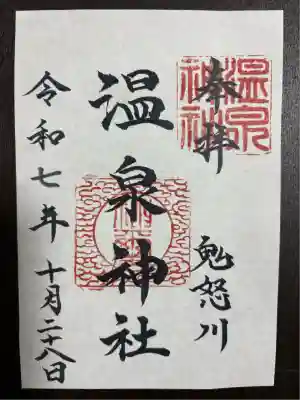 奉拝
温泉神社
鬼怒川
温泉神社
令和七年十月二十八日